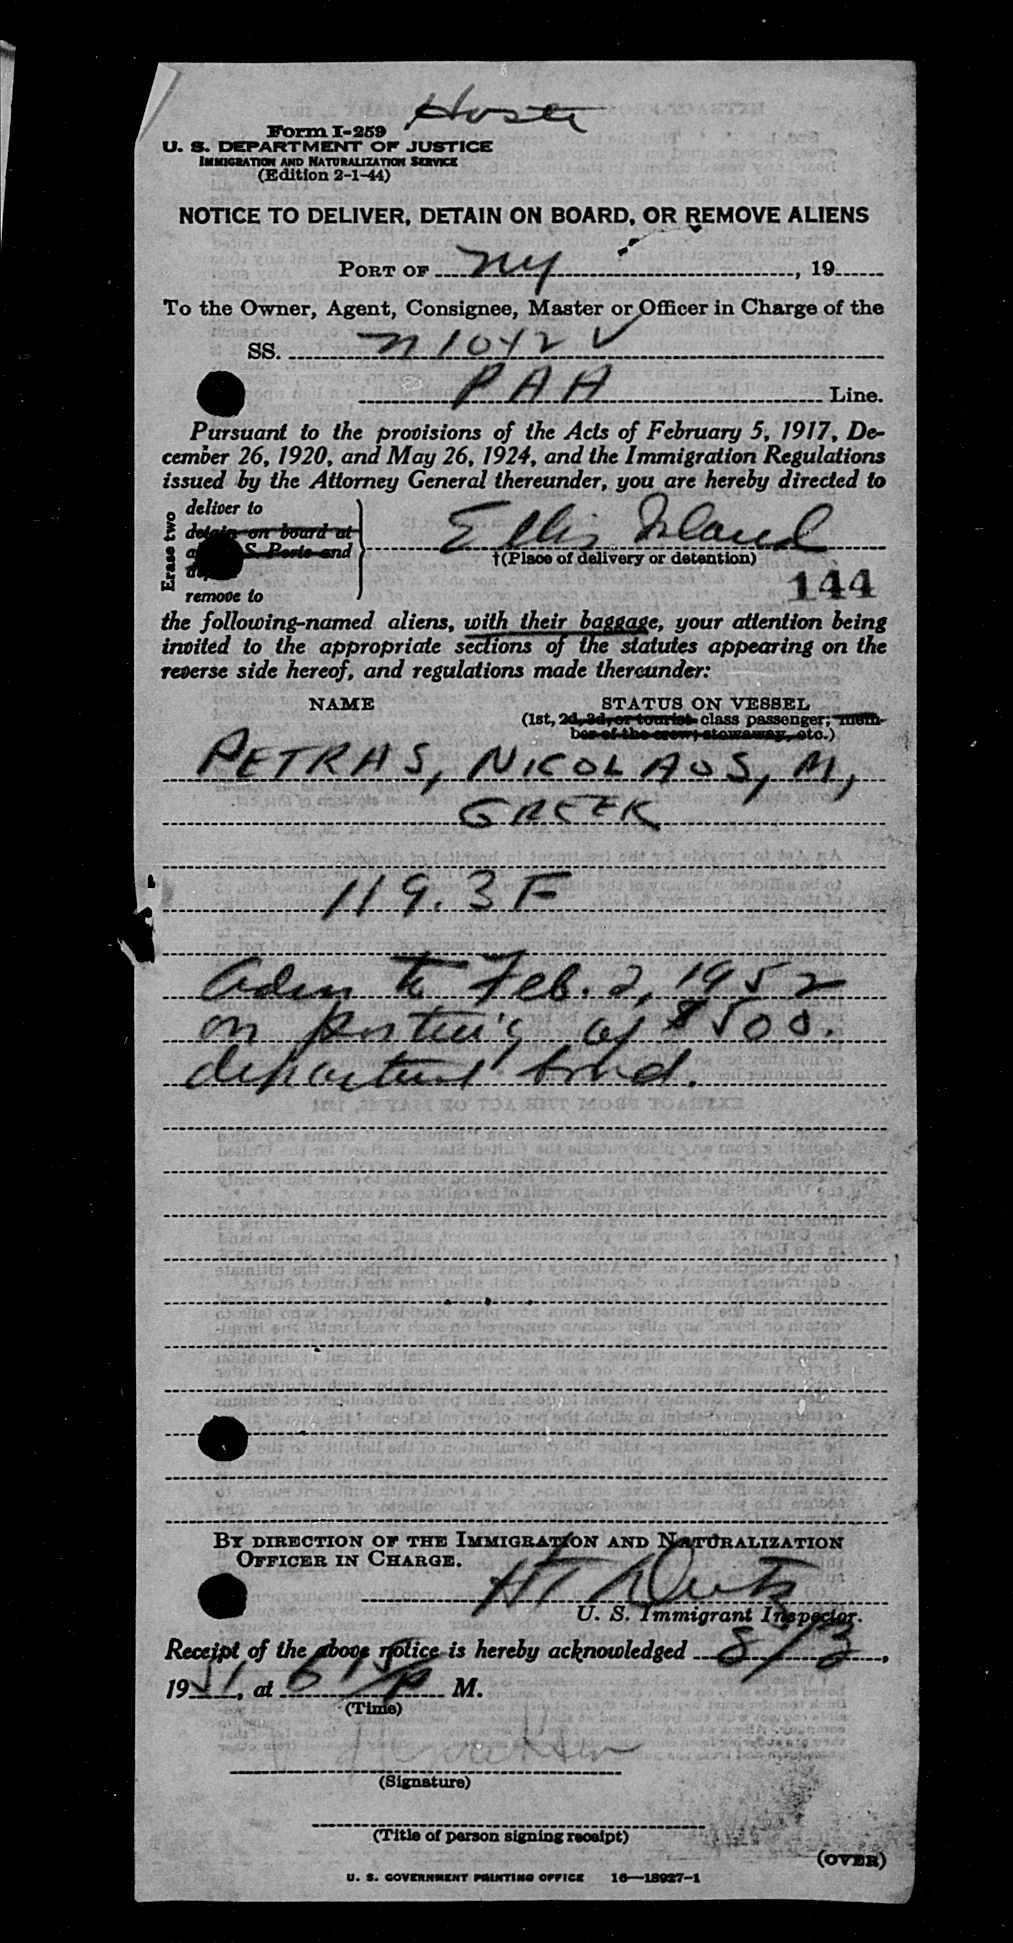 Form I-259
U. S. DEPARTMENT OF JUSTICE
IMMIGRATION AND NATURALIZATION SERVICE
(Edition 2-1-44)
NOTICE TO DELIVER, DETAIN ON BOARD, OR REMOVE ALIENS
PORT OF NY , 19
To the Owner, Agent, Consignee, Master or Officer in Charge of the
SS. N 1042 V
PAA Line.
Pursuant to the provisions of the Acts of February 5, 1917, De-
cember 26, 1920, and May 26, 1924, and the Immigration Regulations
issued by the Attorney General thereunder, you are hereby directed to
Erase two
deliver to
detain on board at
S. Ports and
remove to
Ellis Island
†(Place of delivery or detention)
144
the following-named aliens, with their baggage, your attention being
invited to the appropriate sections of the statutes appearing on the
reverse side hereof, and regulations made thereunder:
NAME STATUS ON VESSEL
(1st, 2d, 3d, or tourist class passenger; mem-
ber of the crew; stowaway, etc.)
PETRAS, NICOLAOS, M,
GREEK
119.3F
Adm to Feb. 2, 1952
on posting of $500.
departure bond.
BY DIRECTION OF THE IMMIGRATION AND NATURALIZATION
OFFICER IN CHARGE.
U. S. Immigrant Inspector.
Receipt of the above notice is hereby acknowledged 8/3,
1951, at 615 P M.
(Time)
(Signature)
(Title of person signing receipt)
(OVER)
U. S. GOVERNMENT PRINTING OFFICE 16—18927-1